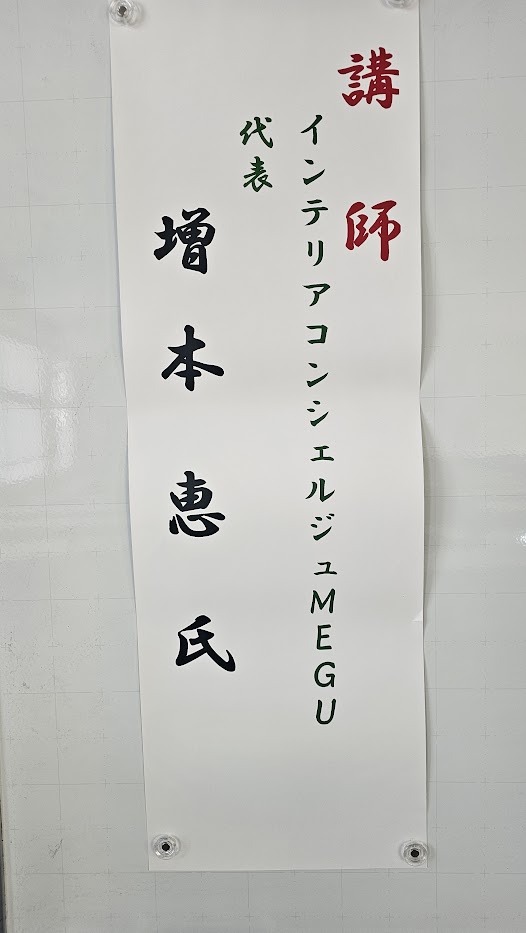 講師
インテリアコンシェルジュMEGU
代表
増本恵氏